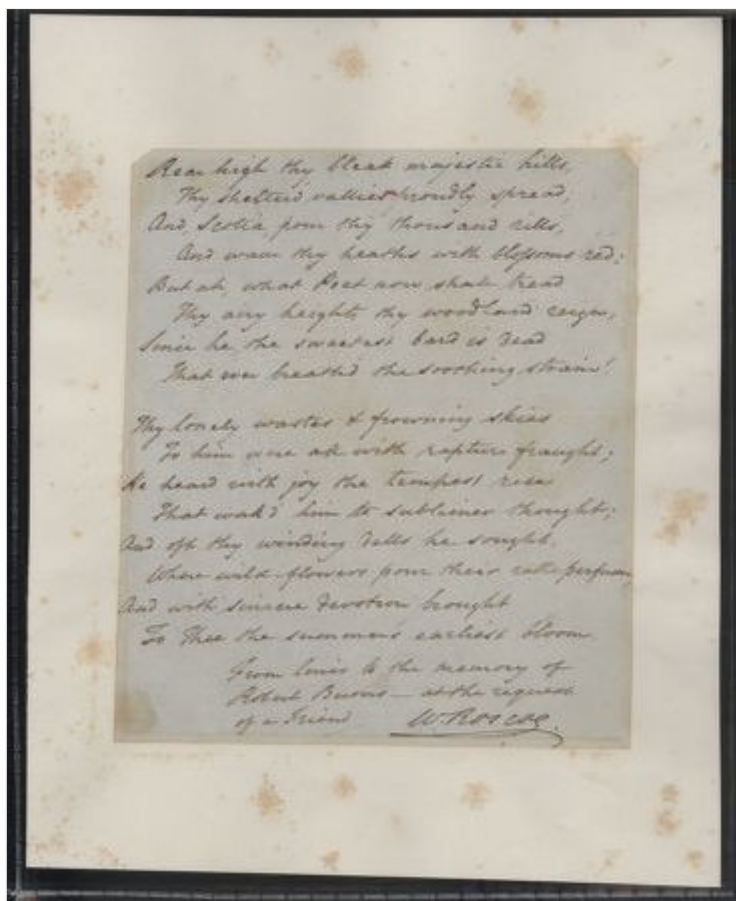 Rear high thy bleak majestic hills,
Thy shelter'd vallies proudly spread,
And, Scotia pour thy thousand rills,
And wave thy heaths with blossoms red;
But ah, what Poet now shall tread
Thy airy heights, thy woodland reign,
Since he the sweetest bard is dead
That ever breath'd the soothing strain!
Thy lonely wastes & frowning skies
To him were all with rapture fraught;
He heard with joy the tempest rise
That wak'd him to sublimer thought;
And oft thy winding dells he sought,
Where wild-flowers pour their rathe perfume,
And with sincere devotion brought
To Thee the summer's earliest bloom
From lines to the memory of
Robert Burns — at the request
of a Friend W. Roscoe.